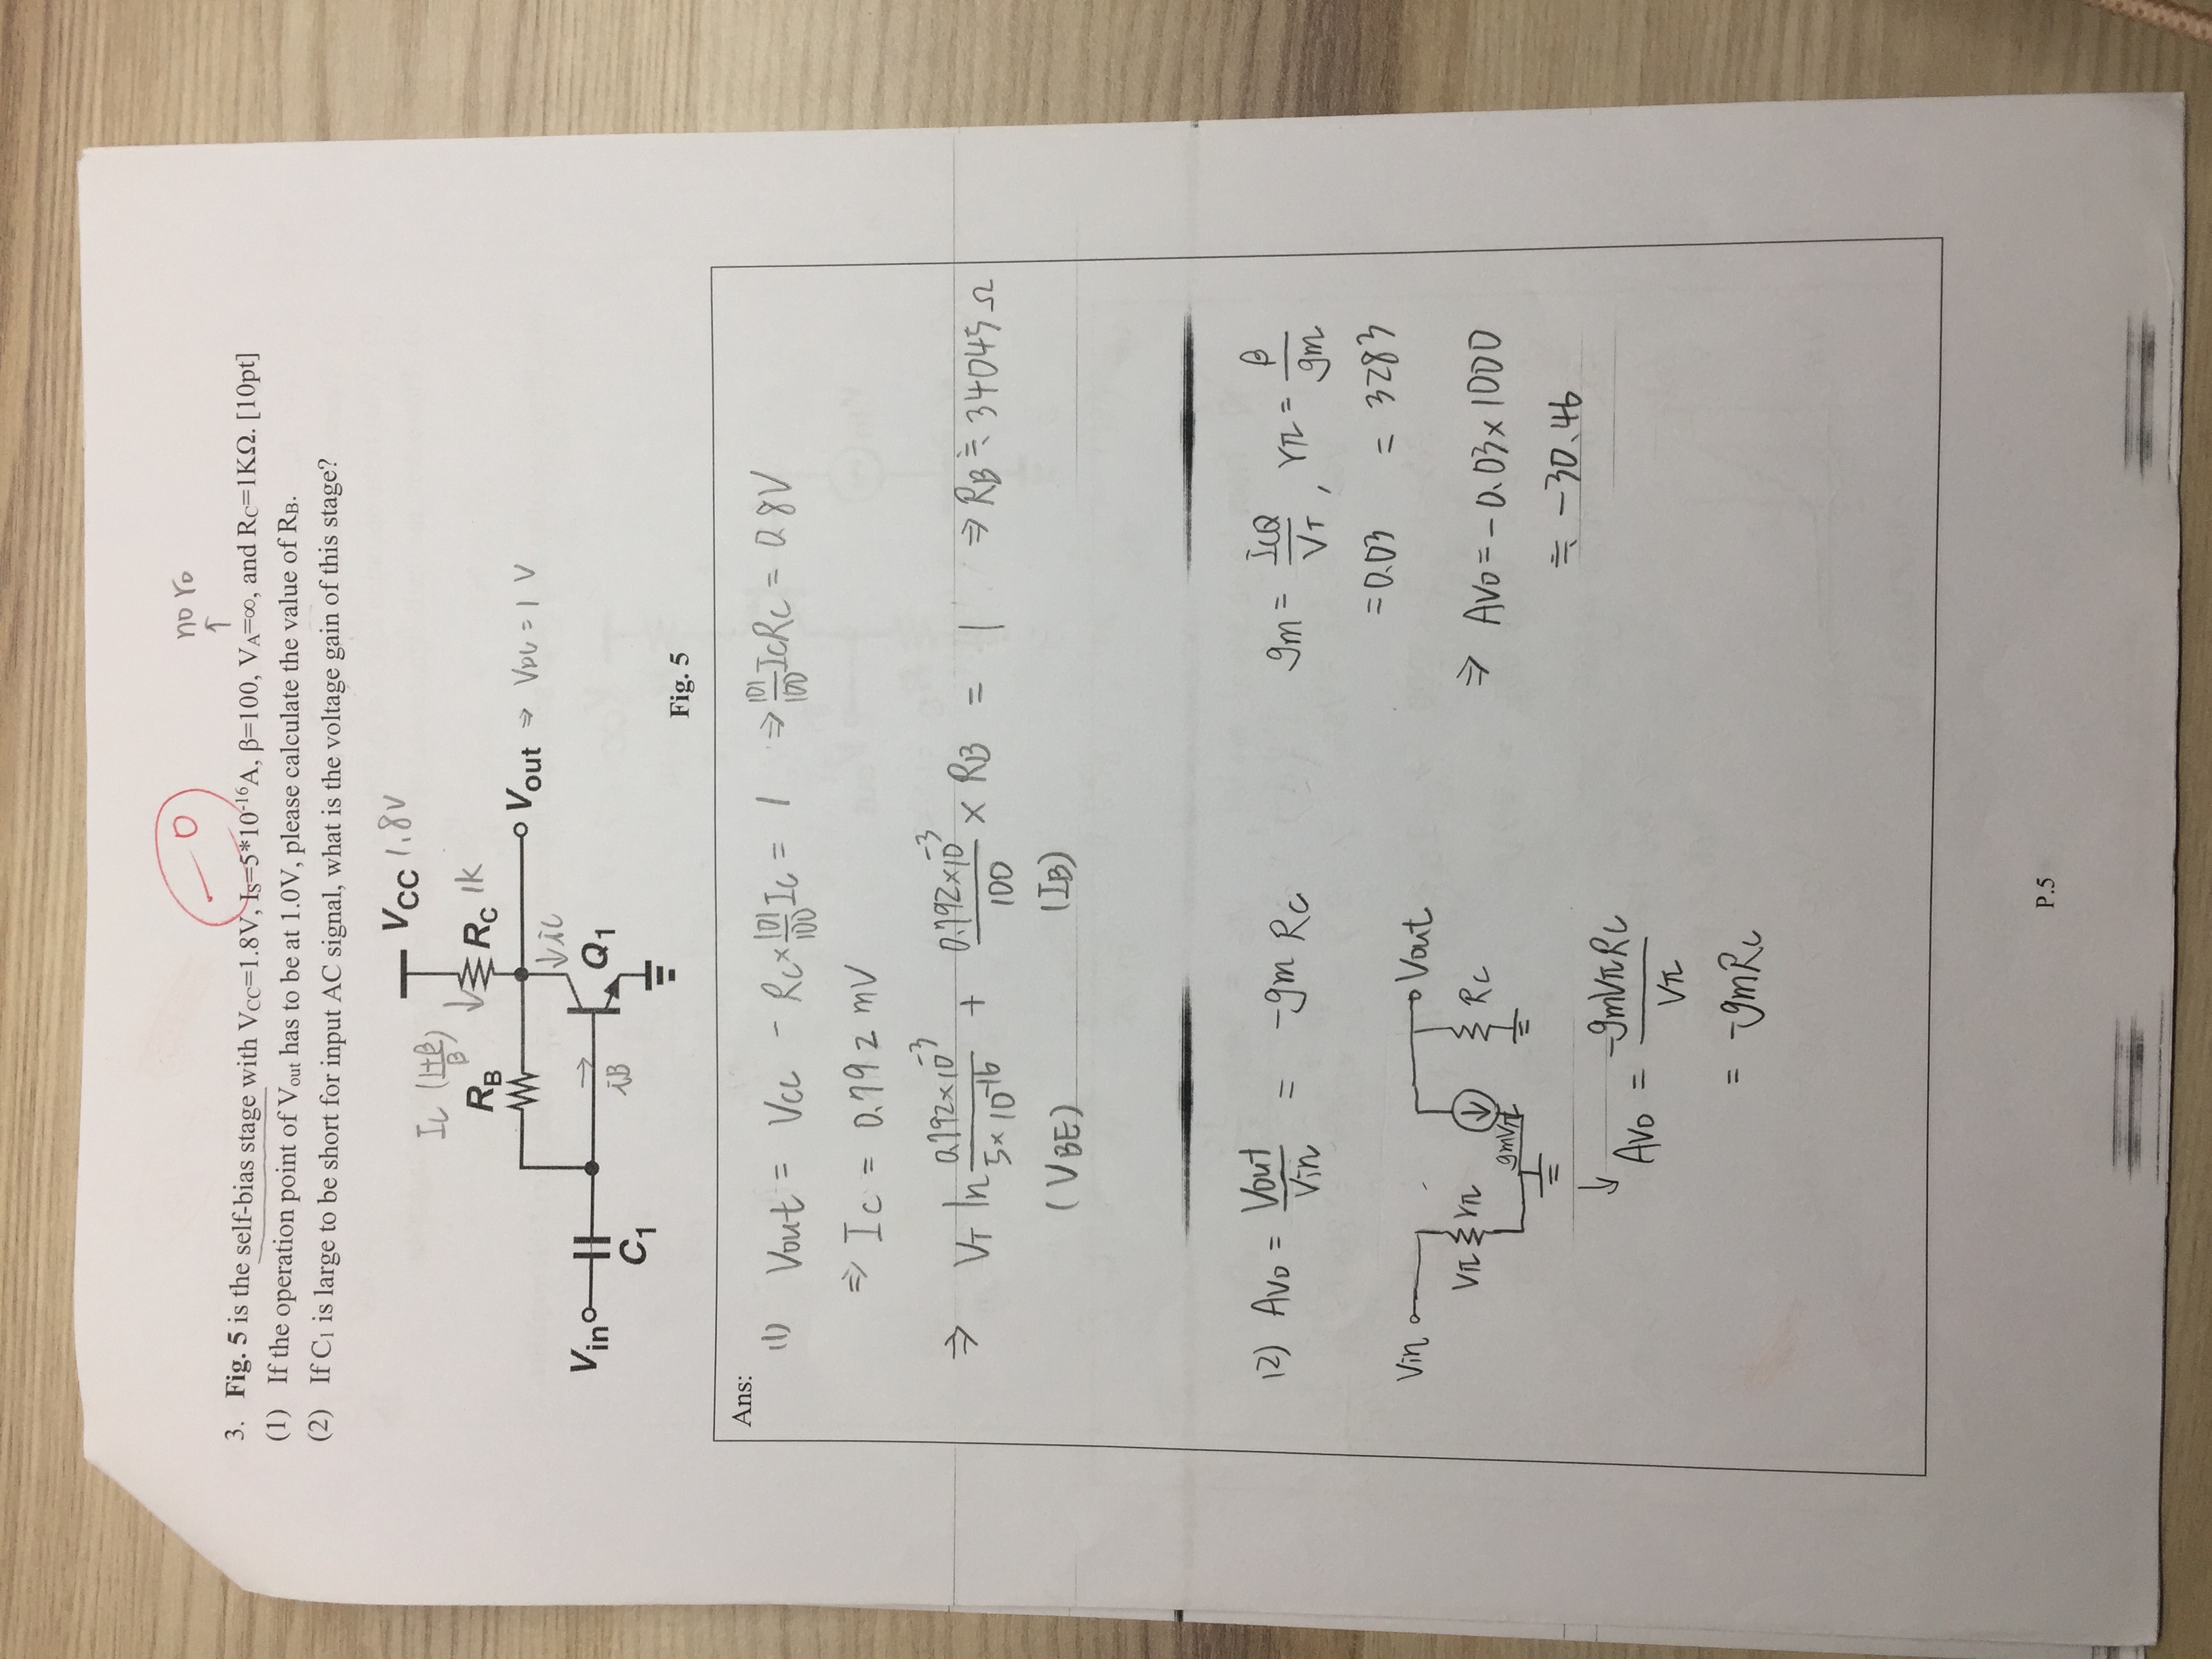 −0
no ro
↑
3. Fig. 5 is the self-bias stage with VCC=1.8V, IS=5*10^-16A, β=100, VA=∞, and RC=1KΩ. [10pt]
(1) If the operation point of Vout has to be at 1.0V, please calculate the value of RB.
(2) If C1 is large to be short for input AC signal, what is the voltage gain of this stage?
VCC 1.8V
Ic (1+β/β)
↓
RB
RC 1k
Vout ⇒ VDC = 1 V
↓ic
Vin
→
iB
Q1
C1
Fig. 5
Ans:
(1) Vout = Vcc - Rc×101/100 Ic = 1 ⇒ 101/100 IcRc = 0.8V
⇒ Ic = 0.792 mV
⇒ VT ln 0.792×10^-3/5×10^-16 + 0.792×10^-3/100 × RB = 1 ⇒ RB ≒ 34045 Ω
(VBE) (IB)
(2) Avo = Vout/Vin = -gm Rc
gm = IcQ/VT, rπ = β/gm
= 0.03 = 3283
Vin
Vout
Vπ rπ
gmVπ
Rc
⇒ Avo = -0.03×1000
≒ -30.46
↓ Avo = -gmVπRc/Vπ
= -gmRc
P.5